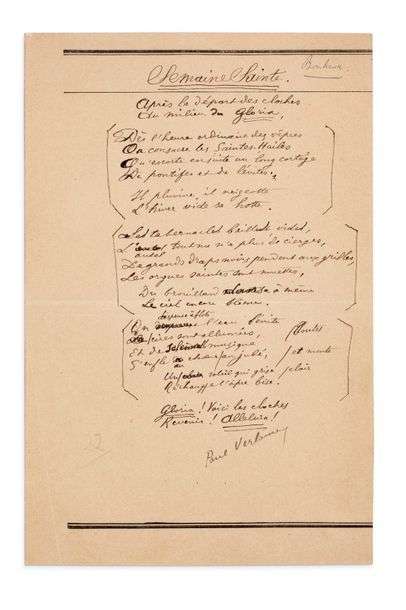 Bonheur
Semaine Sainte.
Après le départ des cloches
Au milieu du Gloria,
Dès l'heure ordinaire des vêpres
On consacre les Saintes-Huiles
Qu'escorte ensuite un long cortège
De pontifes et de lévites.
Il pluvine, il neigeotte
L'hiver vide sa hotte.
Les tabernacles bâillent vides,
L'autel tout nu n'a plus de cierges,
De grands draps noirs pendent aux grilles,
Les orgues saintes sont muettes,
Du brouillard à même
Le ciel encore blême.
On l'eau bénite
cires sont allumées, foules
Et de musique
S'enfle au chœur jubile, et monte
Un soleil qui grise clair
Réchauffe l'âpre bise.
Gloria! Voici les cloches
Revenir! Alleluia!
Paul Verlaine